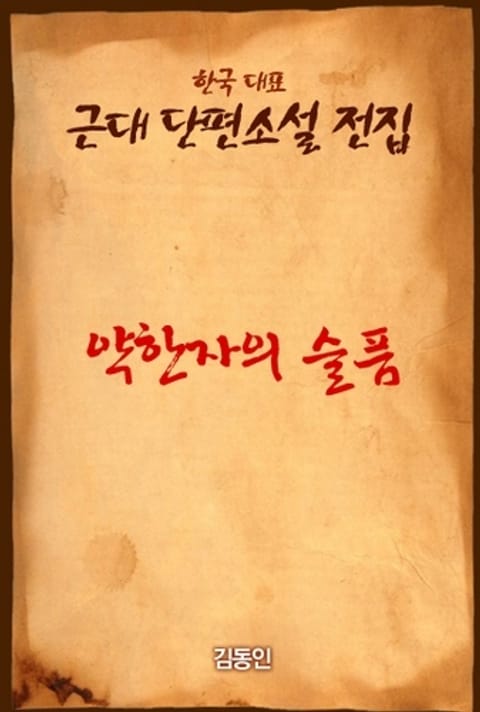 한국 대표
근대 단편소설 전집
약한자의 슬픔
김동인